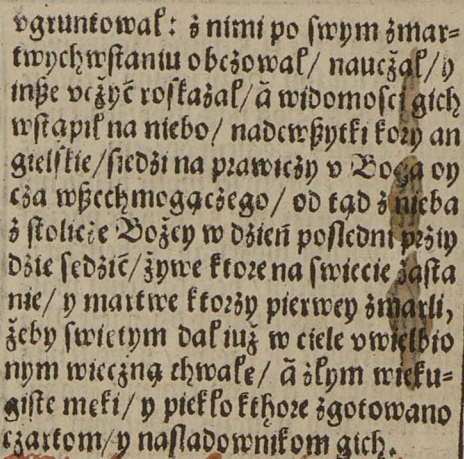 vgruntował: z nimi po swym zmar=
twychwstaniu obczował/ nauczał/ y
insze vczyć roskazał/ á widomosci gich
wstąpił na niebo/ nadewszytki kory an
gielskie/ siedzi na prawiczy v Boga oy
cza wszechmogączego/ od tąd z nieba
z stolicze Bożey w dzień posledni przıy
dzie sędzić/ żywe ktore na swiecie zasta
nie/ y martwe ktorzy pierwey zmarli,
żeby swiętym dał iuż w ciele vwielbio
nym wieczną chwałę/ á złym wieku=
giste męki/ y piekło kthore zgotowano
czartom/ y nasladownikom gich.